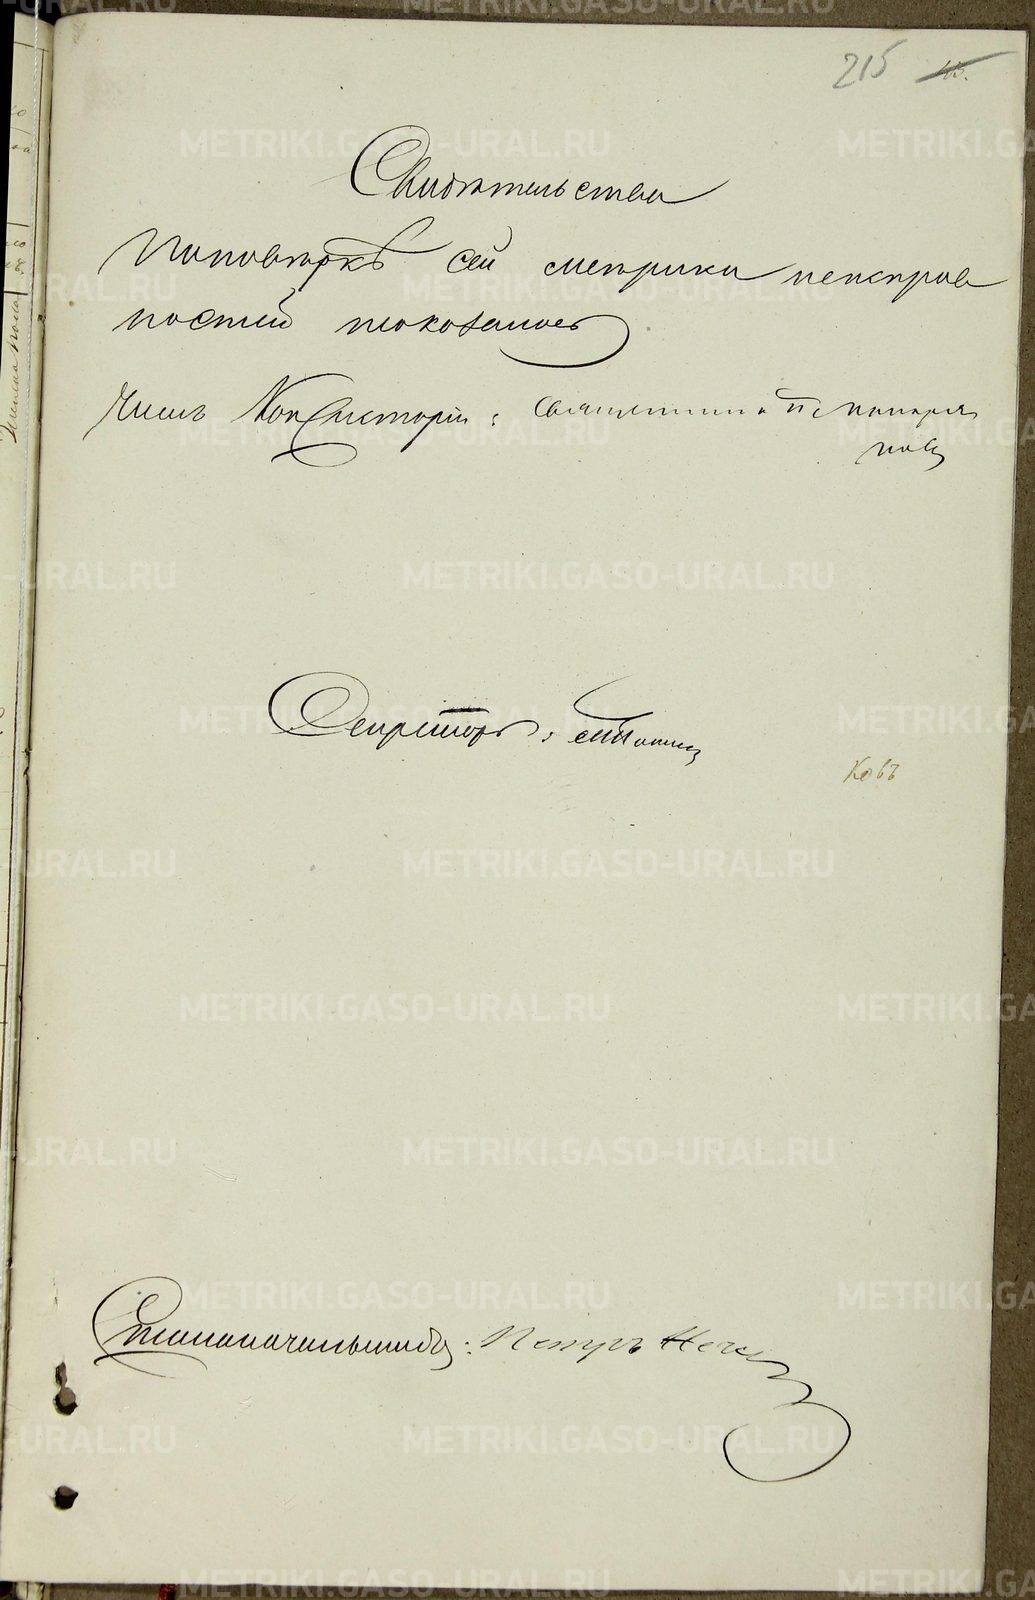 215 46.
Свидѣтельство
По повѣркѣ сей метрики неисправ
ностей не оказалось
Членъ Консисторіи: Священникъ
новъ
Секретарь:
ковъ
Столоначальникъ: Петръ
METRIKI.GASO-URAL.RU